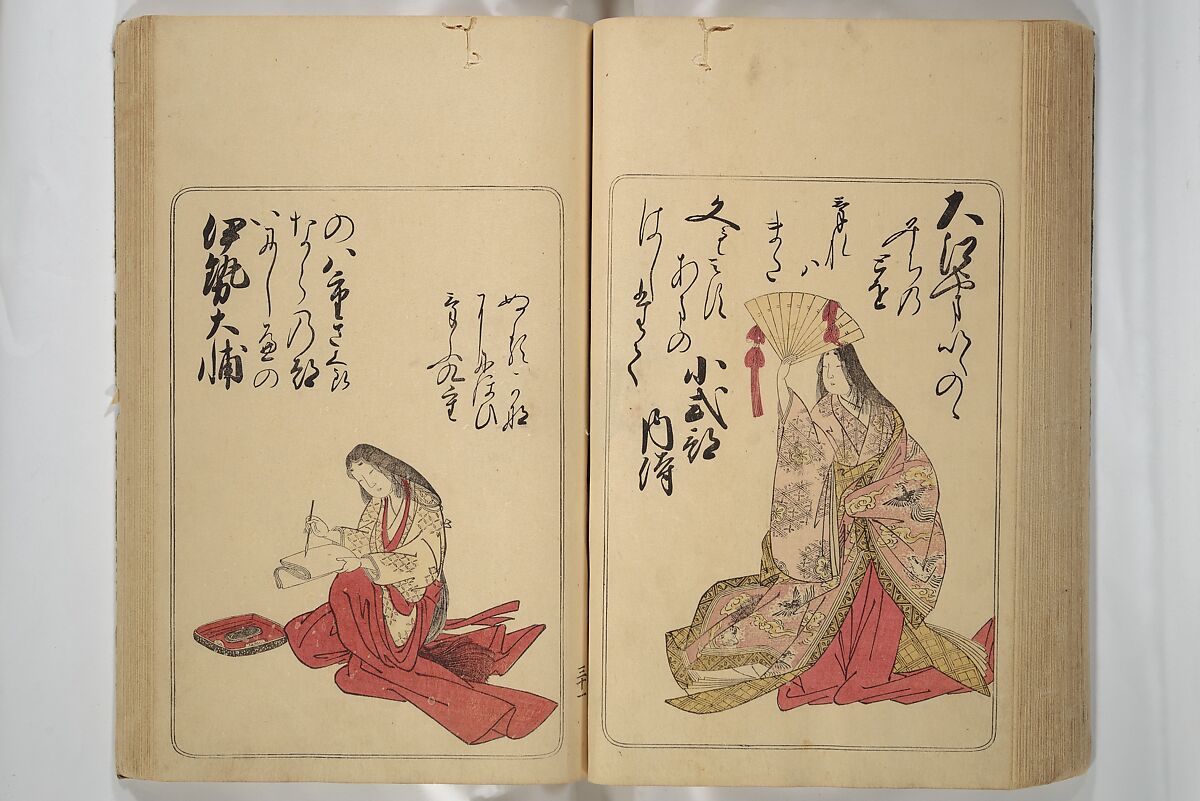 大江やまいくのゝ
みちの
とを
けれ
ハ
また
文もみす
あまの
はしたて
小式部
内侍
伊勢大輔
いにしへの
ならの都
の八重さくら
けふ九重
にゝほひ
ぬるかな
三十一